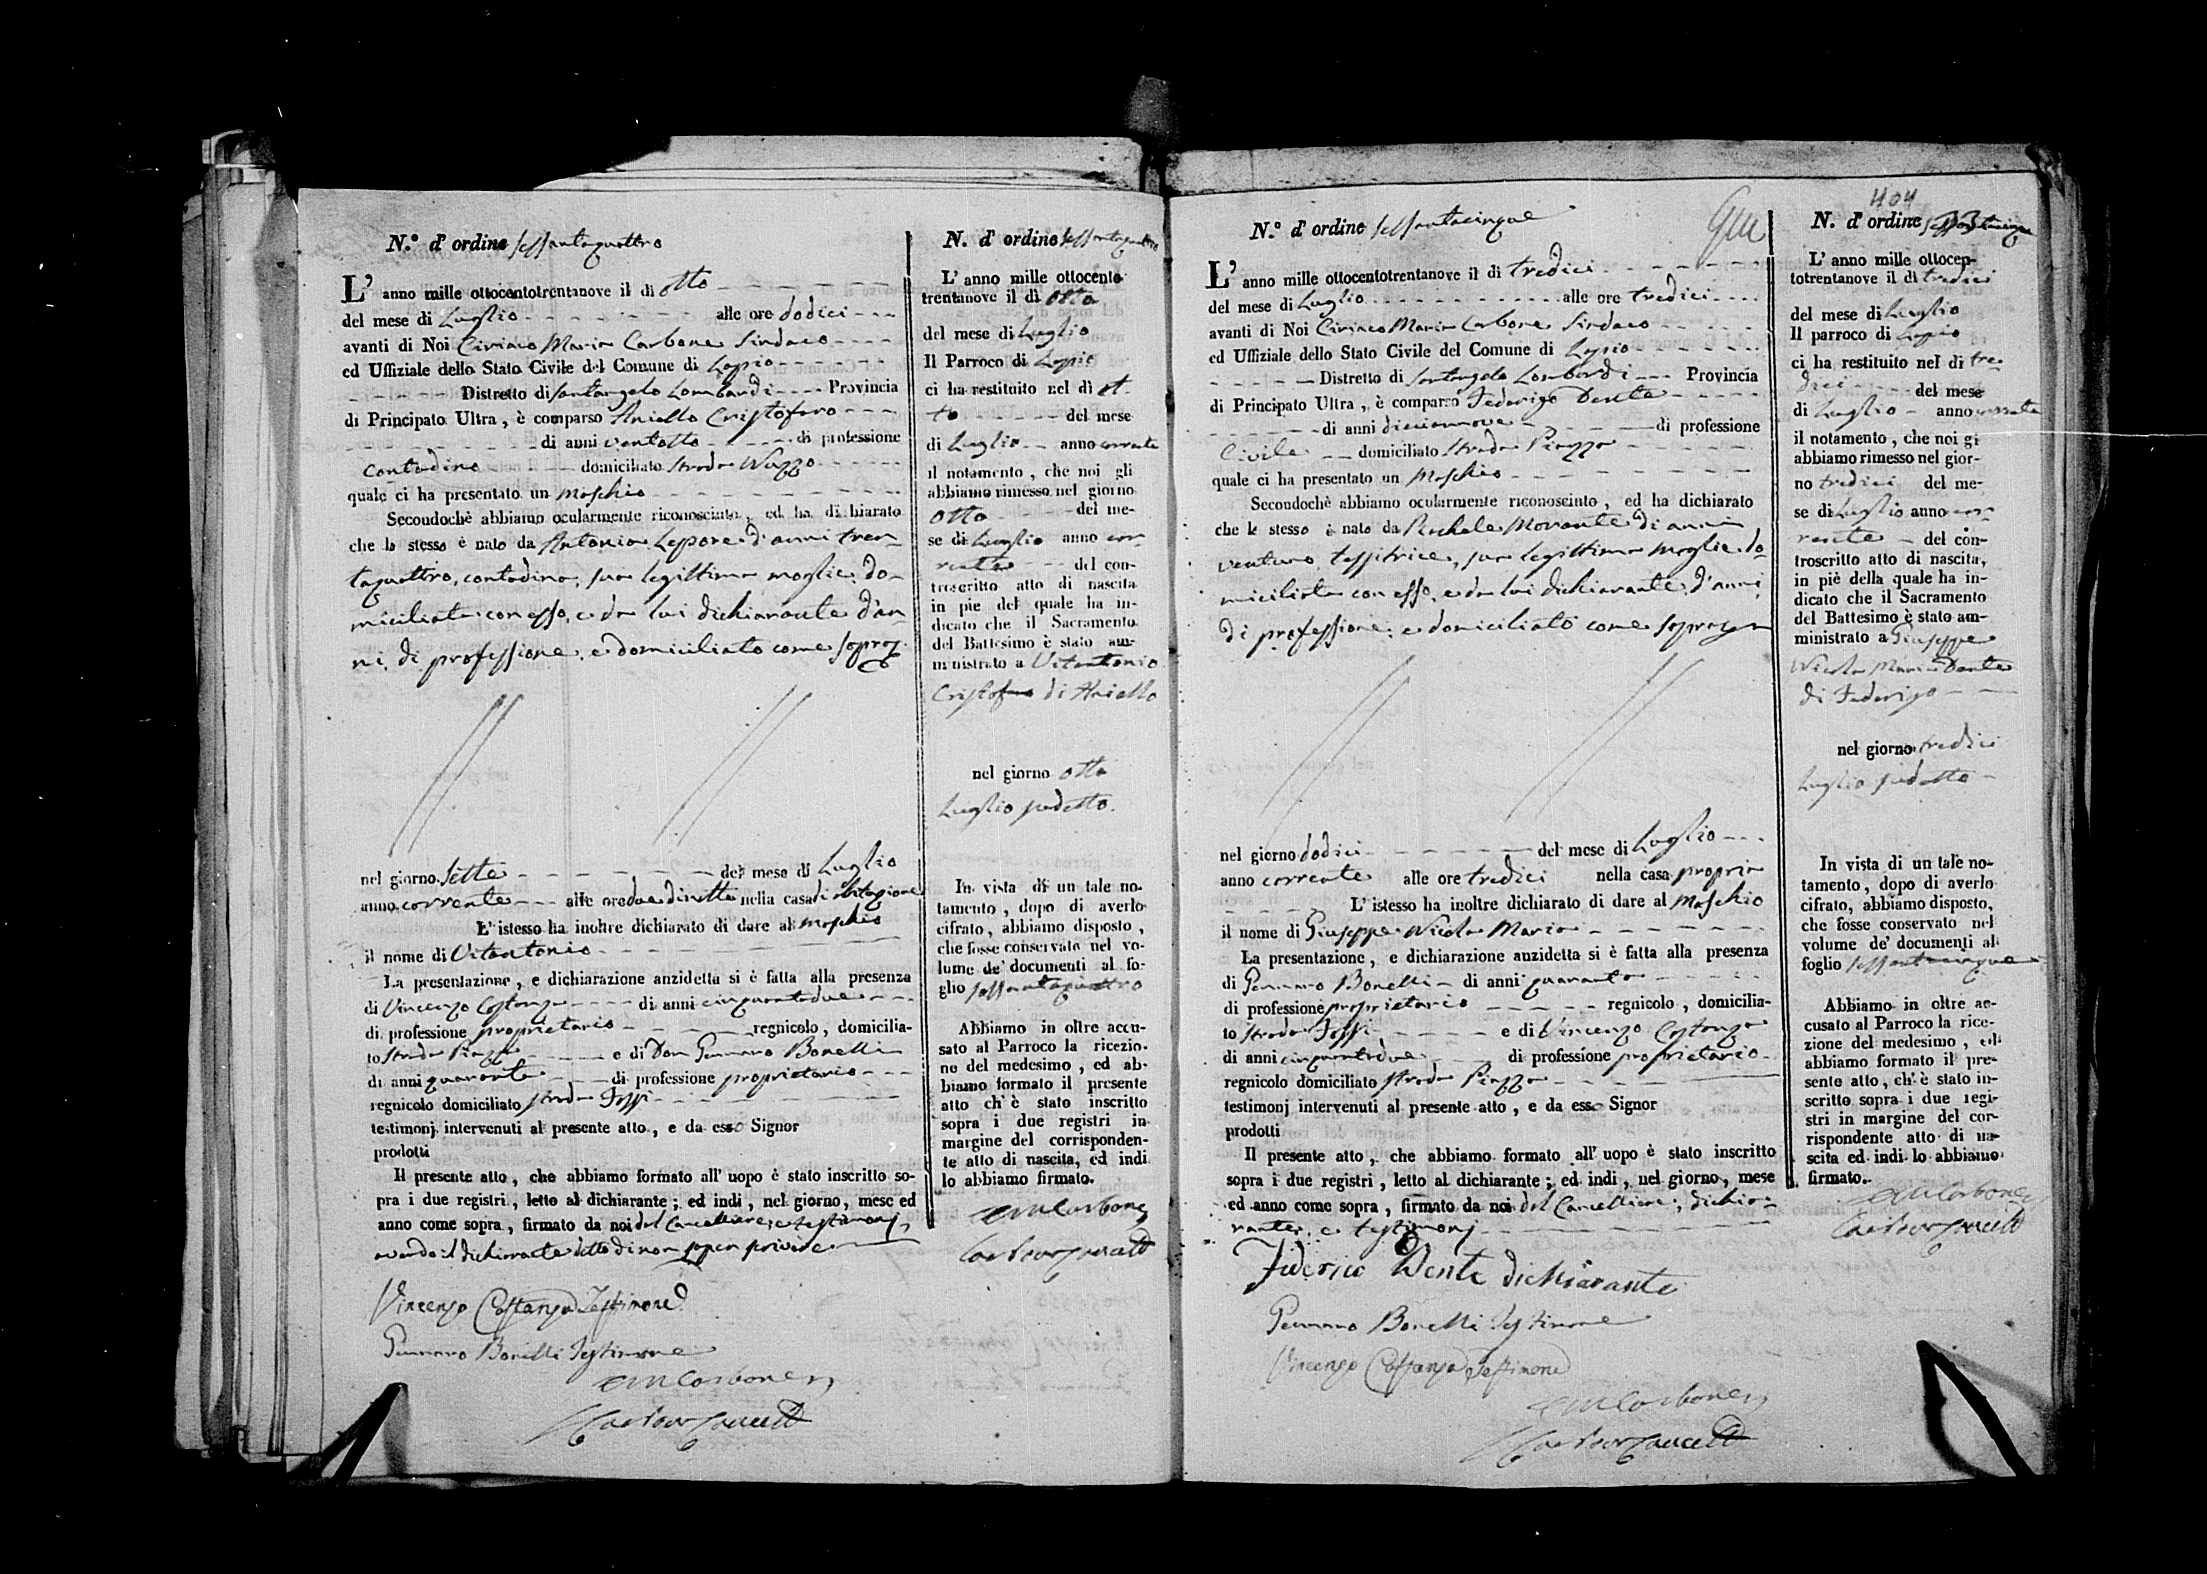 N.º d' ordine sessantaquattro
L' anno mille ottocentotrentanove il di otto
del mese di Luglio alle ore dodici
avanti di Noi Ciriaco Maria Carbone Sindaco
ed Uffiziale dello Stato Civile del Comune di Lapio
Distretto di Santangelo Lombardi Provincia
di Principato Ultra, è comparso Aniello Cristofaro
di anni ventotto di professione
contadino domiciliato Strada
quale ci ha presentato un maschio
Secondochè abbiamo ocularmente riconosciuto, ed ha dichiarato
che lo stesso è nato da Antonia Lepore d'anni tren-
taquattro, contadina, sua legittima moglie do-
miciliata con esso, e da lui dichiarante d'an-
ni, di professione, e domiciliato come sopra
nel giorno sette del mese di Luglio
anno corrente alle ore due di notte nella casa di abitazione
L'istesso ha inoltre dichiarato di dare al maschio
il nome di Vitantonio
La presentazione, e dichiarazione anzidetta si è fatta alla presenza
di Vincenzo Costanza di anni cinquantadue
di professione proprietario regnicolo, domicilia-
to Strada Piazza e di Don Gennaro Bonelli
di anni quaranta di professione proprietario
regnicolo domiciliato strada Fossi
testimonj intervenuti al presente atto, e da esso Signor
prodotti
Il presente atto, che abbiamo formato all' uopo è stato inscritto so-
pra i due registri, letto al dichiarante; ed indi, nel giorno, mese ed
anno come sopra, firmato da noi del Cancelliere, e testimonj,
avendo il dichiarante detto di non saper scrivere
Vincenzo Costanza Testimone
Gennaro Bonelli Testimone
CM Carbone
N. d' ordine sessantaquattro
L' anno mille ottocento
trentanove il dì otto
del mese di Luglio
Il Parroco di Lapio
ci ha restituito nel dì ot-
to del mese
di Luglio anno corrente
il notamento, che noi gli
abbiamo rimesso nel giorno
otto del me-
se di Luglio anno cor-
rente del con-
troscritto atto di nascita
in piè del quale ha in-
dicato che il Sacramento
del Battesimo è stato am-
ministrato a Vitantonio
Cristofaro di Aniello
nel giorno otto
Luglio sudetto.
In vista di un tale no-
tamento, dopo di averlo
cifrato, abbiamo disposto,
che fosse conservato nel vo-
lume de' documenti al fo-
glio sessantaquattro
Abbiamo in oltre accu-
sato al Parroco la ricezio-
ne del medesimo, ed ab-
biamo formato il presente
atto ch' è stato inscritto
sopra i due registri in
margine del corrisponden-
te atto di nascita, ed indi
lo abbiamo firmato.
CM Carbone
N.º d' ordine sessantacinque
L' anno mille ottocentotrentanove il di tredici
del mese di Luglio alle ore tredici
avanti di Noi Ciriaco Maria Carbone Sindaco
ed Uffiziale dello Stato Civile del Comune di Lapio
Distretto di Santangelo Lombardi Provincia
di Principato Ultra, è comparso Federigo Dente
di anni diciannove di professione
Civile domiciliato Strada Piazza
quale ci ha presentato un Maschio
Secondochè abbiamo ocularmente riconosciuto, ed ha dichiarato
che lo stesso è nato da Rachele Morante di anni
ventuno tessitrice, sua legittima moglie do-
miciliata con esso, e da lui dichiarante, d'anni,
di professione, e domiciliato come sopra
nel giorno dodici del mese di Luglio
anno corrente alle ore tredici nella casa propria
L' istesso ha inoltre dichiarato di dare al Maschio
il nome di Giuseppe Nicola Maria
La presentazione, e dichiarazione anzidetta si è fatta alla presenza
di Gennaro Bonelli di anni quaranta
di professione proprietario regnicolo, domicilia-
to Strada Fossi e di Vincenzo Costanza
di anni cinquantadue di professione proprietario
regnicolo domiciliato strada Piazza
testimonj intervenuti al presente atto, e da esso Signor
prodotti
Il presente atto, che abbiamo formato all' uopo è stato inscritto
sopra i due registri, letto al dichiarante; ed indi, nel giorno, mese
ed anno come sopra, firmato da noi del Cancelliere, dichia-
rante, e testimonj
Federico Dente dichiarante
Gennaro Bonelli Testimone
Vincenzo Costanza Testimone
CM Carbone
404
N. d' ordine
L' anno mille ottocen-
totrentanove il dì tredici
del mese di Luglio
Il parroco di Lapio
ci ha restituito nel di tre-
dici del mese
di Luglio anno corrente
il notamento, che noi gi
abbiamo rimesso nel gior-
no tredici del me-
se di Luglio anno cor-
rente del con-
troscritto atto di nascita,
in piè della quale ha in-
dicato che il Sacramento
del Battesimo è stato am-
ministrato a Giuseppe
Nicola Maria Dente
di Federigo
nel giorno tredici
Luglio sudetto
In vista di un tale no-
tamento, dopo di averlo
cifrato, abbiamo disposto,
che fosse conservato nel
volume de' documenti al
foglio sessantacinque
Abbiamo in oltre ac-
cusato al Parroco la rice-
zione del medesimo, ed
abbiamo formato il pre-
sente atto, ch' è stato in-
scritto sopra i due regi-
stri in margine del cor-
rispondente atto di na-
scita ed indi lo abbiamo
firmato.
CM Carbone